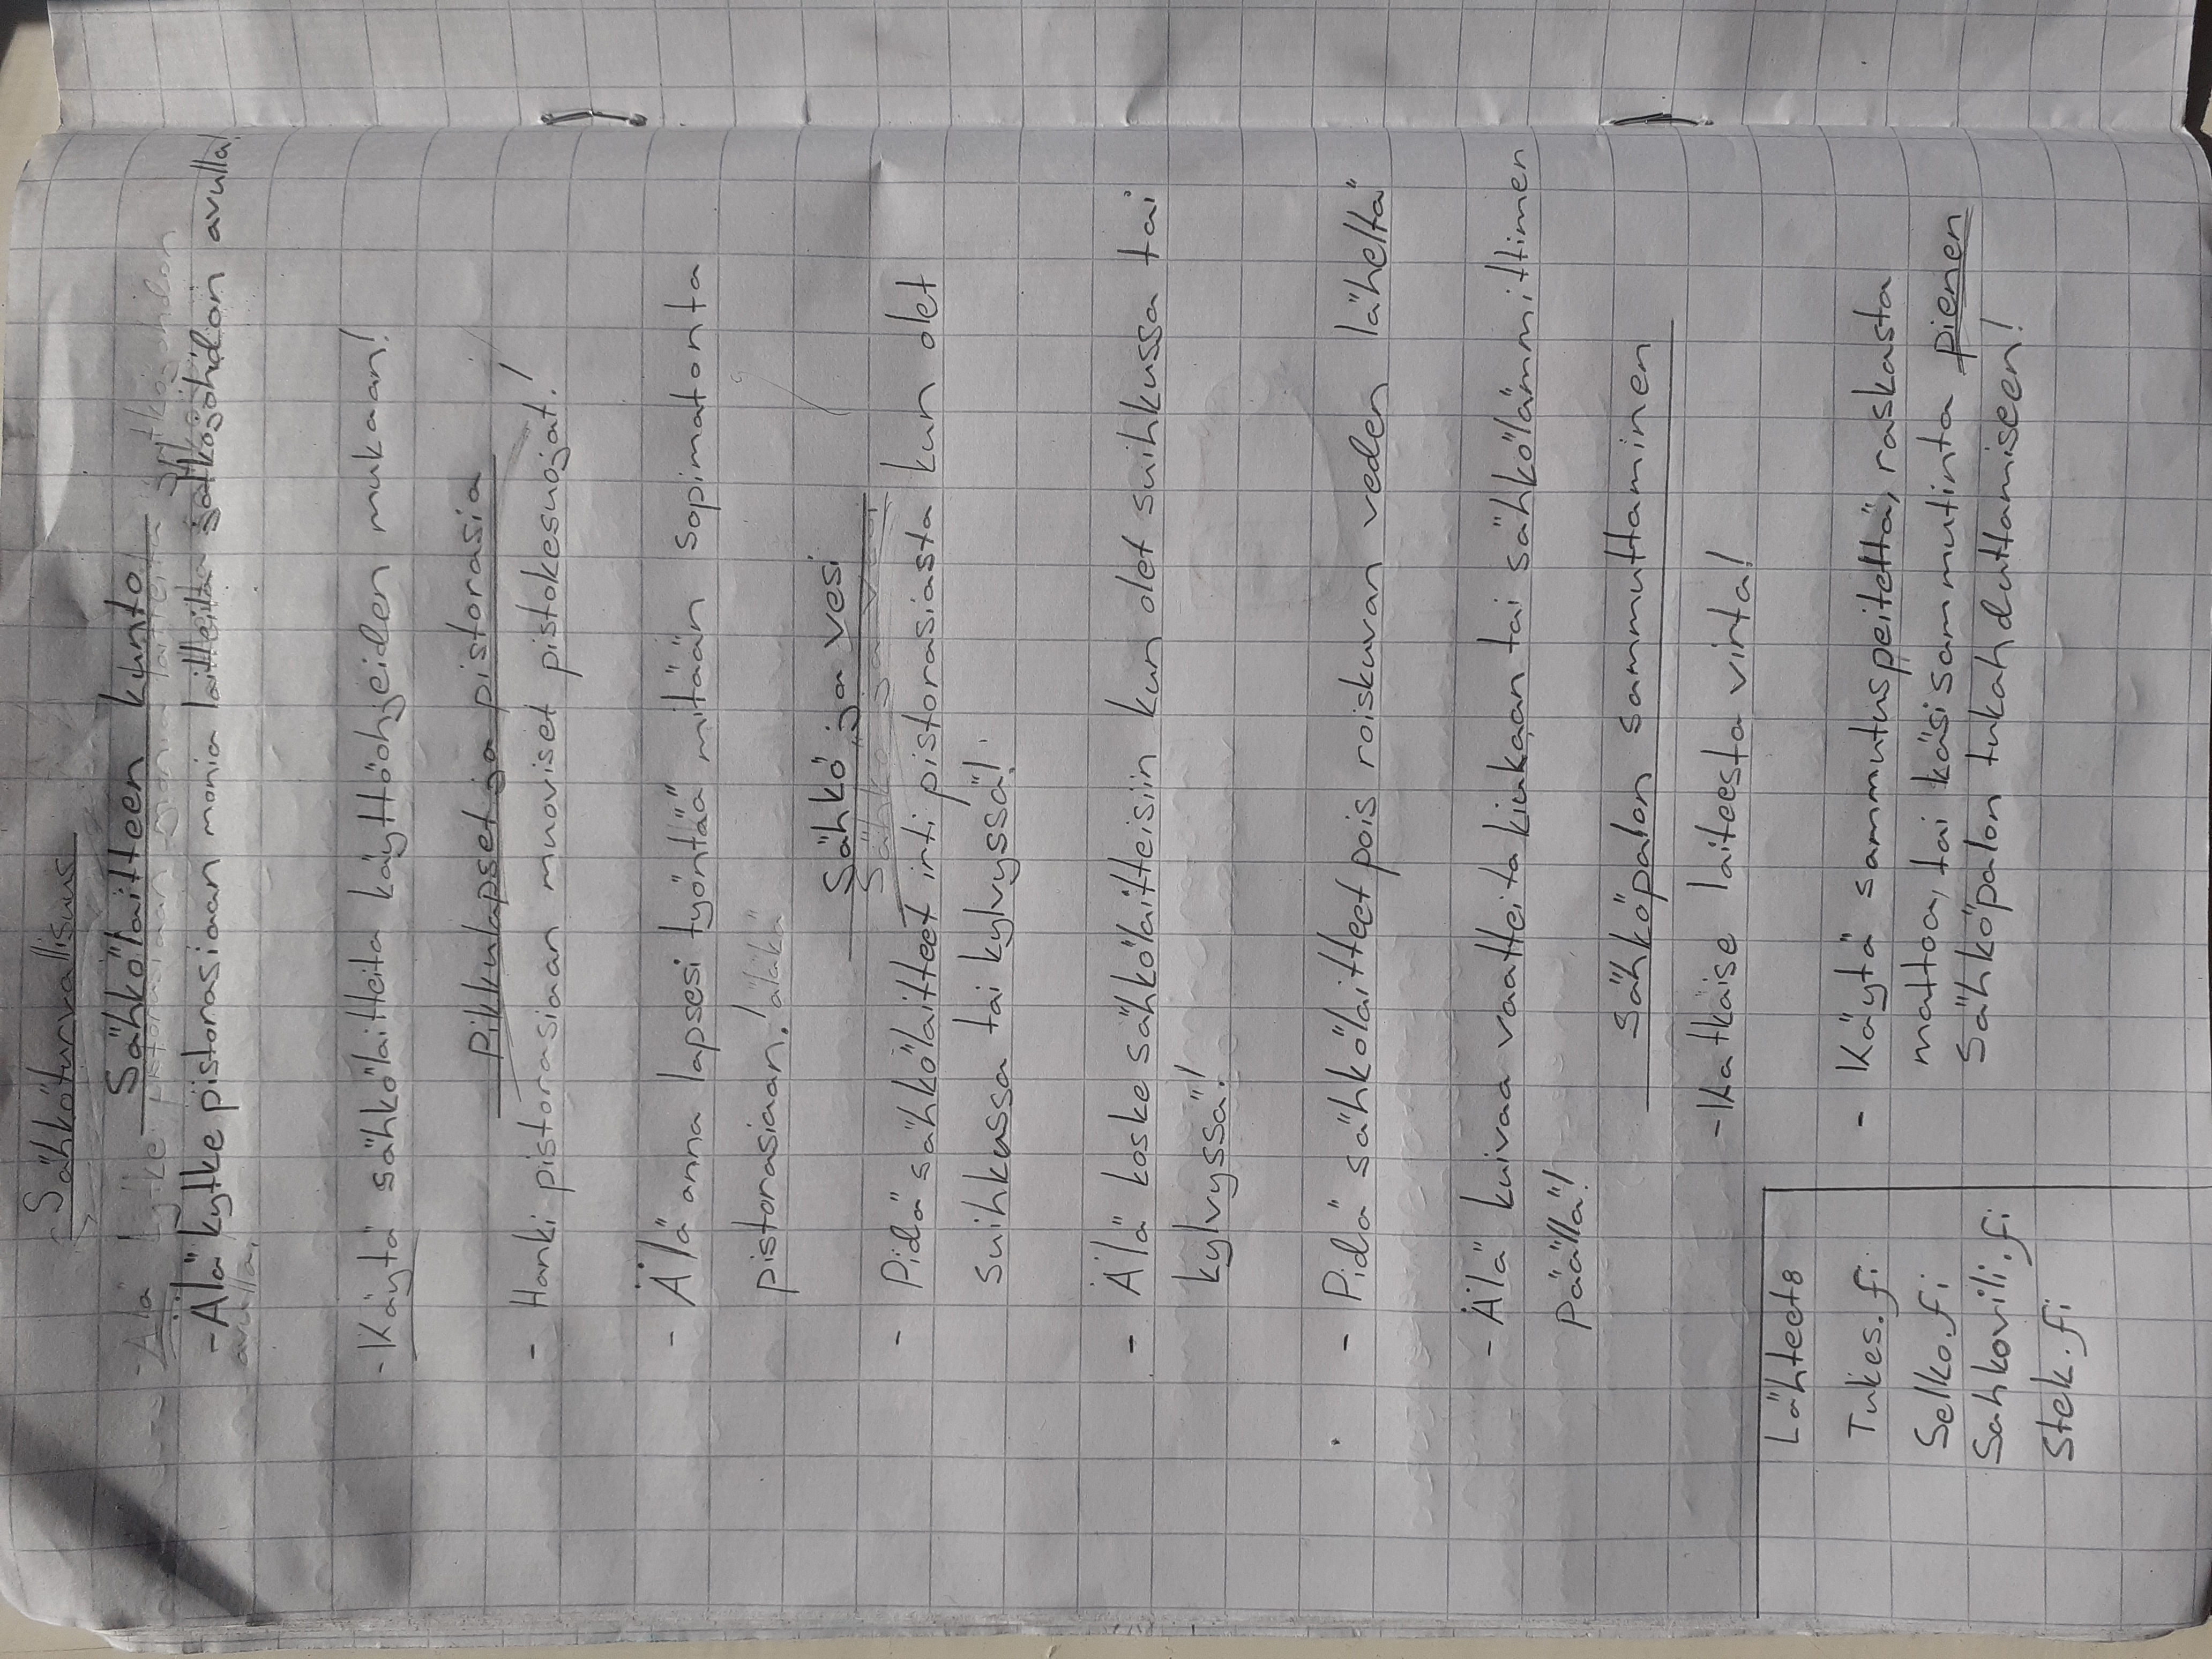 Sähköturvallisuus
Sähkölaitteen kunto
- Älä kytke pistorasiaan monia laitteita jatkojohdon avulla!
- Käytä sähkölaitteita käyttöohjeiden mukaan!
Pikkulapset ja pistorasia
- Hanki pistorasiaan muoviset pistokesuojat!
- Älä anna lapsesi työntää mitään sopimatonta
pistorasiaan! äläkä
Sähkö ja vesi
Sähkö ja vesi
- Pidä sähkölaitteet irti pistorasiasta kun olet
suihkussa tai kylvyssä!
- Älä koske sähkölaitteisiin kun olet suihkussa tai
kylvyssä!
- Pidä sähkölaitteet pois roiskuvan veden läheltä
- Älä kuivaa vaatteita kiukaan tai sähkölämmittimen
Päällä!
Sähköpalon sammuttaminen
- Katkaise laiteesta virta!
- Käytä sammutuspeitettä, raskasta
mattoa, tai käsisammutinta pienen
Sähköpalon tukahduttamiseen!
Lähteet:
Tukes.fi
Selko.fi
Sahkovili.fi
Stek.fi